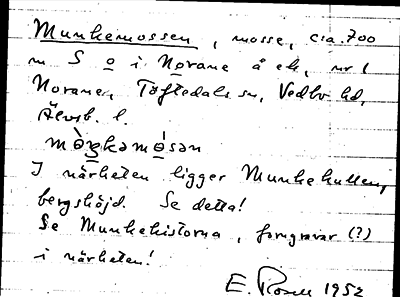 Munkemossen, mosse, cia. 700
m S o i Norane å ek, nr 1
Norane, Töftedals sn, Vedbo hd,
Älvsb. l.
I närheten ligger Munkekullen,
bergshöjd. Se detta!
Se Munkehistorna, forngravar (?)
i närheten!
E. 1952